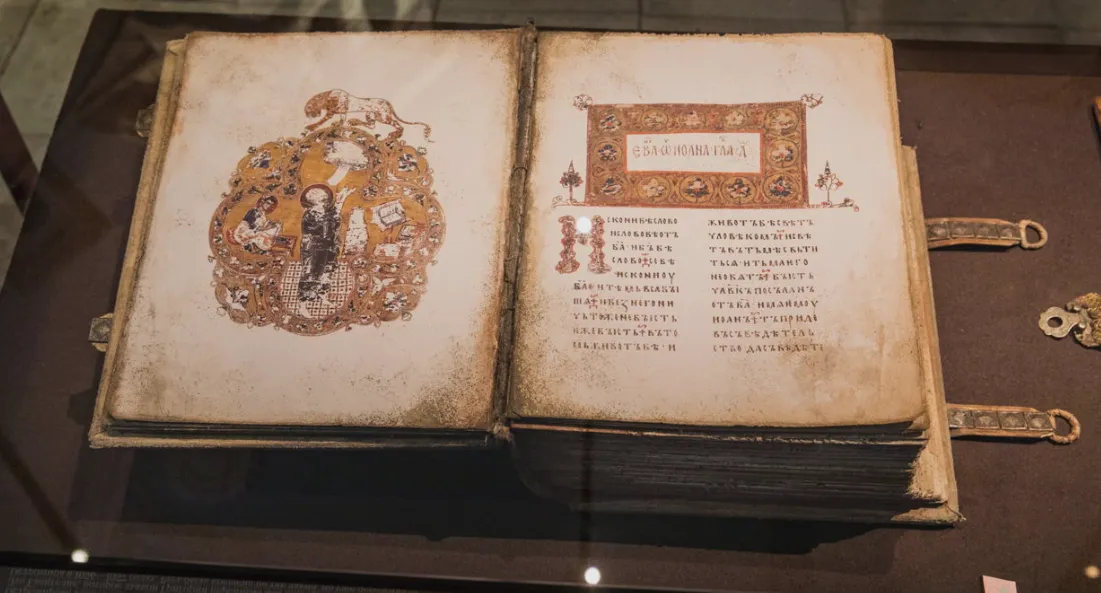 ЕВ҃А Ѿ ИОАНА ГЛА А҃
ИСКОНИ БѢ СЛОВО
И СЛОВО БѢ ОТ
Ъ Б҃А И Б҃Ъ БѢ
СЛОВО СЕ БѢ
ИСКОНИ ОУ
Б҃А И ТѢМЬ ВЬСА БЫ
ША И БЕЗ НЕГО НИ
ЧЬТОЖЕ НЕ БЫСТЬ
ѤЖЕ БЫСТЬ ВЪ ТО
МЬ ЖИВОТЪ БѢ И
ЖИВОТЪ БѢ СВѢТЪ
ЧЛОВѢКОМЪ И СВѢ
ТЪ ВЪ ТЬМѢ СВЬТИ
ТЬСѦ И ТЬМА ѤГО
НЕ ОБѦТЪ БЫСТЬ
ЧЛВКЪ ПОСЪЛАНЪ
ОТЪ Б҃А ИМѦ ѤМОУ
ИОАНЪ ТЪ ПРИДЕ
ВЪ СЪВѢДѢТЕЛЬ
СТВО ДА СЪВѢДѢТЕ